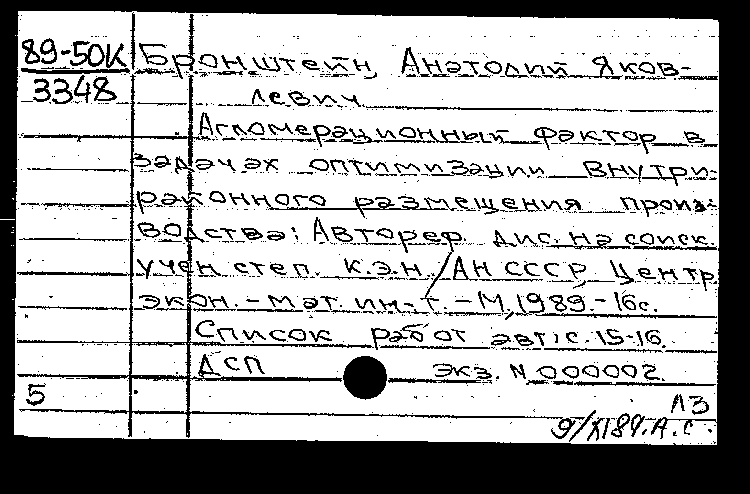 89-50К Бронштейн, Анатолий Яков-
3348 левич
Агломерационный фактор в
задачах оптимизации внутри-
районного размещения произ-
водства: Автореф. дис. на соиск.
учен. степ. к.э.н. / АН СССР, Центр.
экон.-мат. ин-т. - М., 1989. - 16 с.
Список работ авт.: с. 15-16.
ДСП экз. N 000002
5 ЛЗ
9/XI 89. А.С.